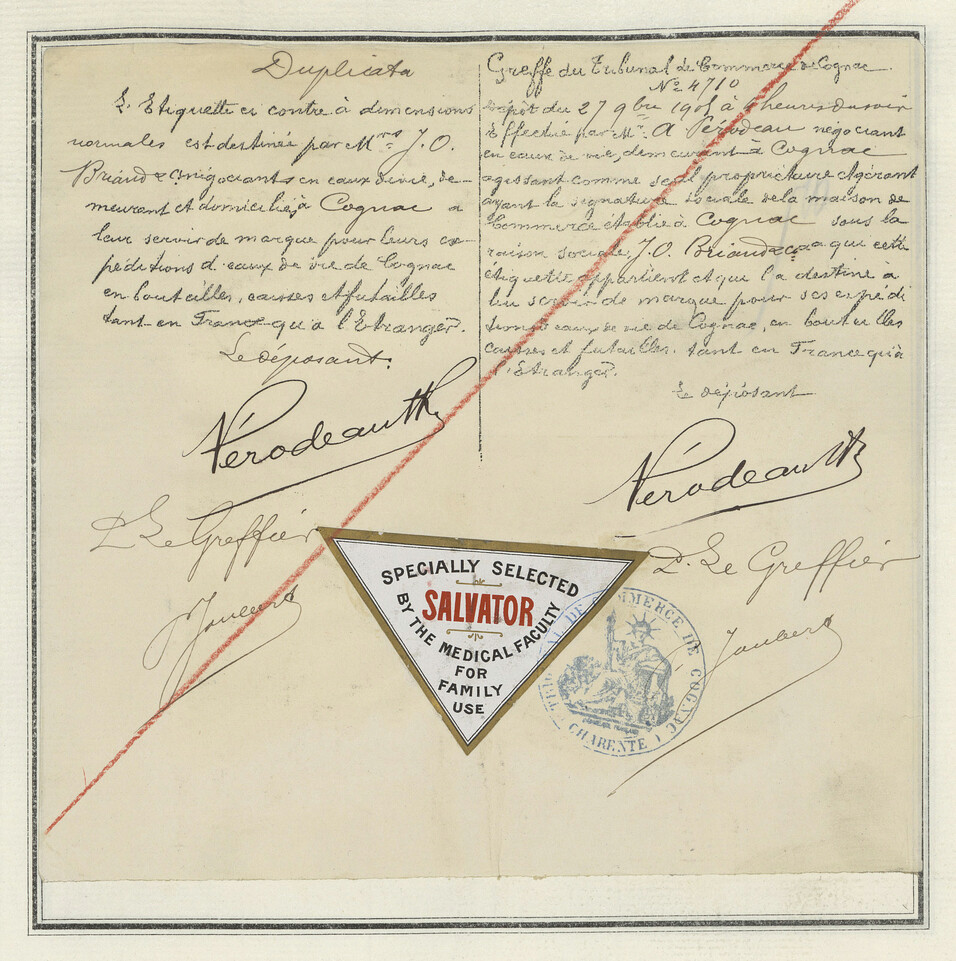 Duplicata
L'Etiquette ci contre à dimensions
normales est destinée par Mrs J.O.
Briand & Co négociants en eaux de vie, de-
meurant et domiciliés à Cognac a
leur servir de marque pour leurs ex-
péditions d'eaux de vie de Cognac
en bouteilles, caisses et futailles
tant en France qu'à l'Etranger.
Le déposant.
Pérodeau
P. Le Greffier
Joubert
Greffe du Tribunal de Commerce de Cognac
No 4710
Dépôt du 27 9bre 1905 à heures du soir
Effectué par Mr. A Pérodeau négociant
en eaux de vie, demeurant à Cognac
agissant comme seul propriétaire et gérant
ayant la signature sociale de la maison de
Commerce établie à Cognac sous la
raison sociale, J.O. Briand & Co à qui cette
étiquette appartient et que l'a destiné à
lui servir de marque pour ses expédi
tions d'eaux de vie de Cognac, en bouteilles
caisses et futailles, tant en France qu'à
l'Etranger.
Le déposant
Pérodeau
P. Le Greffier
Joubert
SPECIALLY SELECTED
SALVATOR
BY THE MEDICAL FACULTY
FOR
FAMILY
USE
TRIBUNAL DE COMMERCE DE COGNAC
CHARENTE